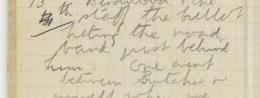 th staff the bullet
hitting the road
bank just behind
him One went
between Butcher &
myself when we